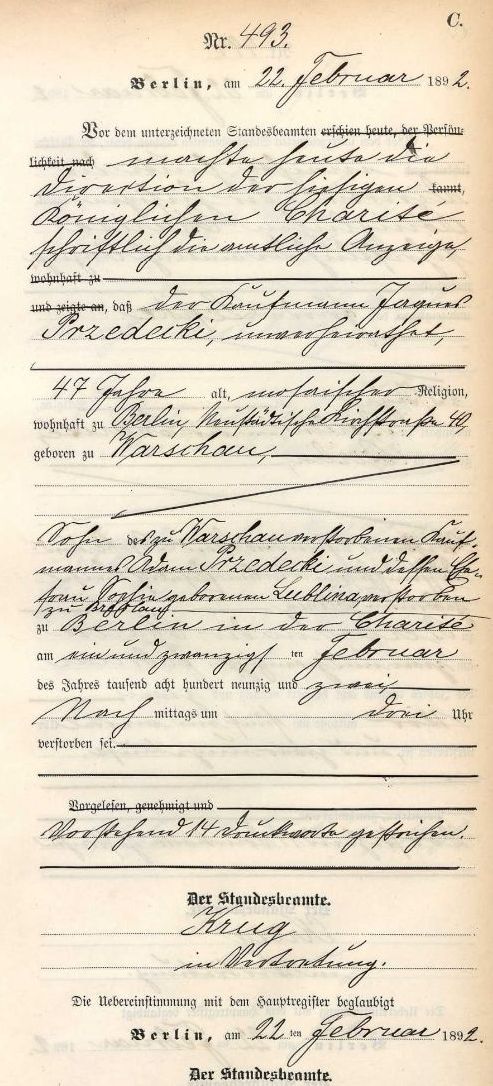 C.
Nr. 493.
Berlin, am 22. Februar 1892.
Vor dem unterzeichneten Standesbeamten erschien heute, der Persön-
lichkeit nach machte heute die
Direction der hiesigen kannt,
Königlichen Charité
schriftlich die amtliche Anzeige,
wohnhaft zu
und zeigte an, daß der Kaufmann Jaques
Przedecki, unverheirathet,
47 Jahre alt, mosaischer Religion,
wohnhaft zu Berlin, Neustädtische Kirchstraße 40,
geboren zu Warschau,
Sohn des zu Warschau verstorbenen Kauf-
mannes Adam Przedecki und dessen Ehe-
frau Sophie geborenen Lublina verstorben
zu Breslau
zu Berlin in der Charité
am ein und zwanzigsten Februar
des Jahres tausend acht hundert neunzig und zwei
Nach mittags um drei Uhr
verstorben sei.
Vorgelesen, genehmigt und
Vorstehend 14 Druckworte gestrichen.
Der Standesbeamte.
Krug
in Vertretung.
Die Uebereinstimmung mit dem Hauptregister beglaubigt
Berlin, am 22 ten Februar 1892.
Der Standesbeamte.